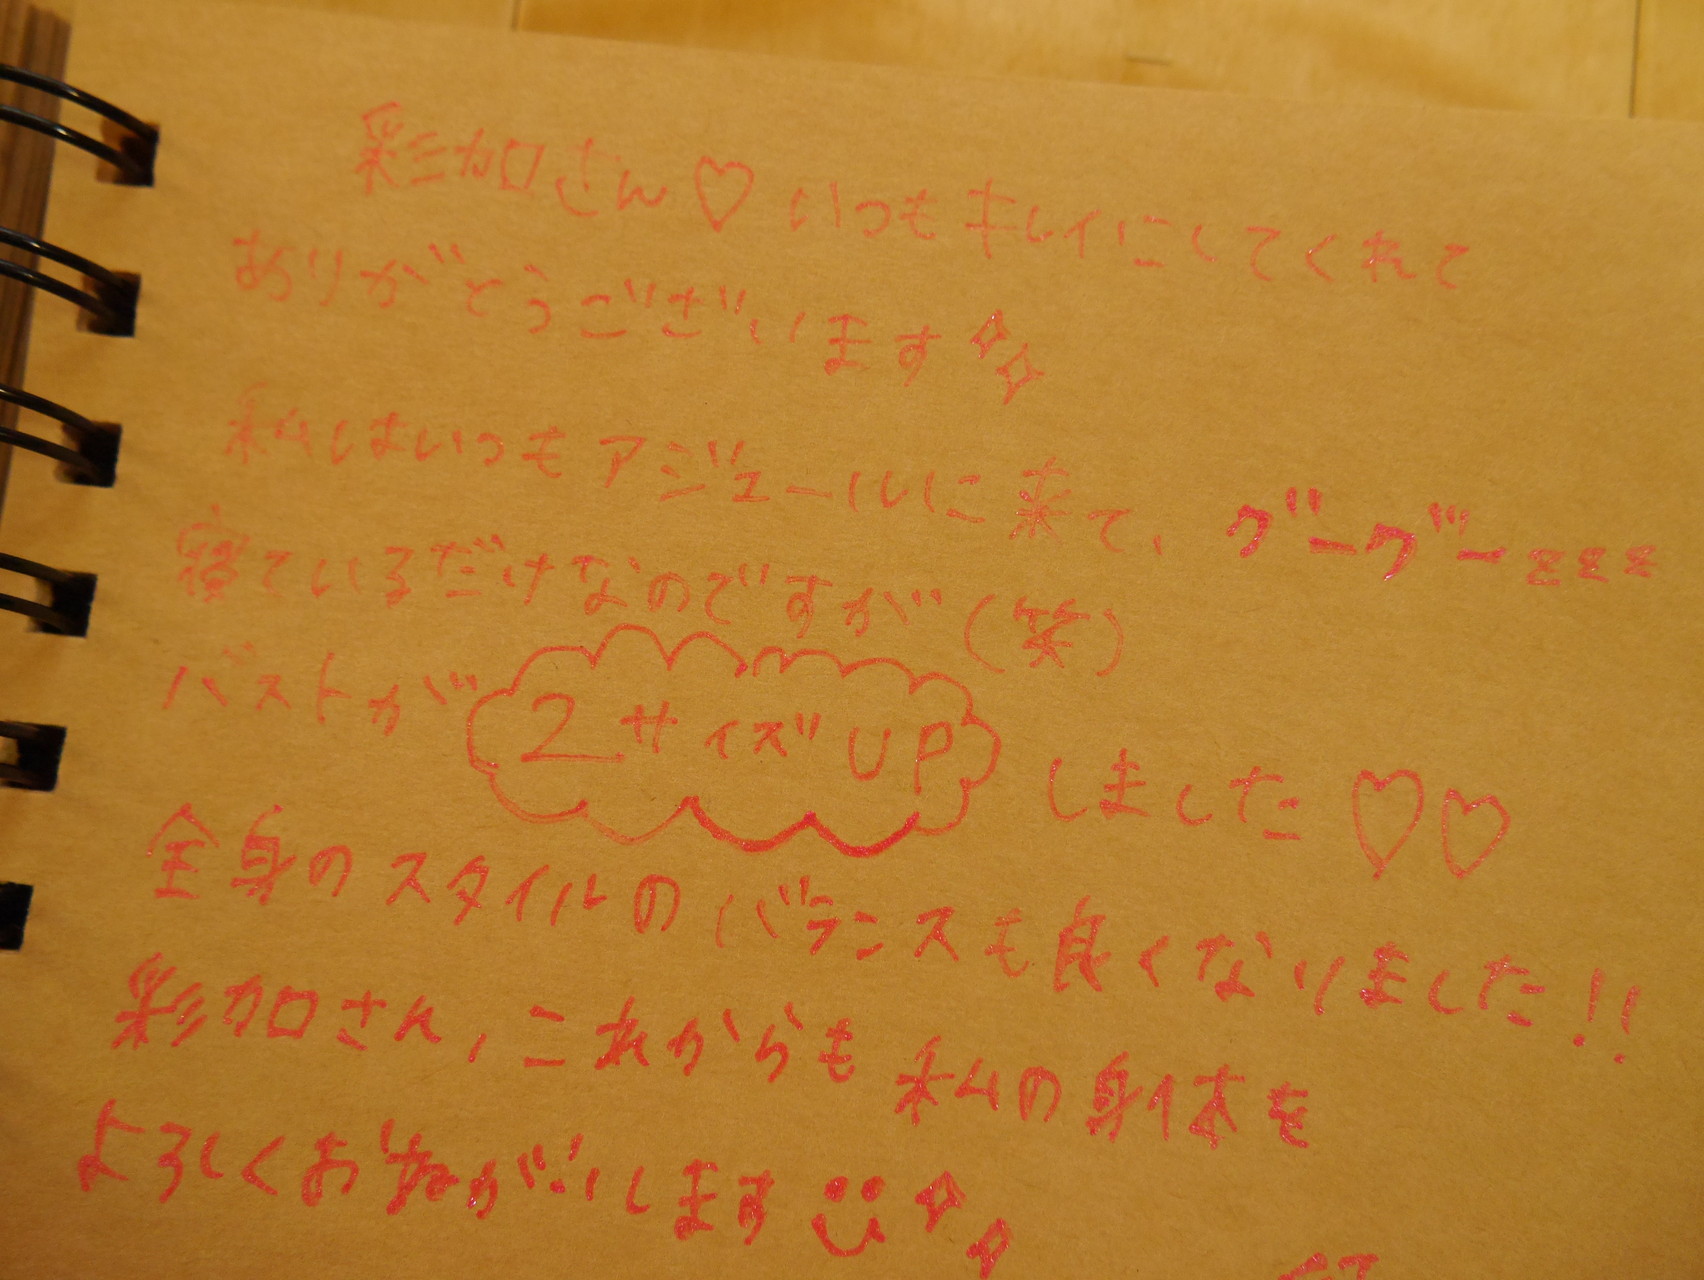 彩加さん♡いつもキレイにしてくれて
ありがとうございます
私しはいつもアジュールに来て、グーグーzzz
寝ているだけなのですが(笑)
バストが2サイズUPしました♡♡
全身のスタイルのバランスも良くなりました!!
彩加さん、これからも私の身体を
よろしくおねがいします